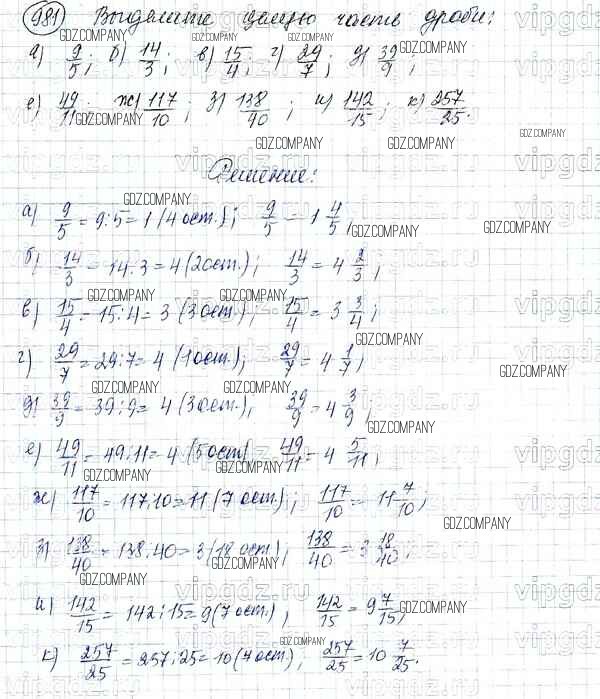 981 Выделите целую часть дроби:
а) 9/5; б) 14/3; в) 15/4; г) 29/7; д) 39/9;
е) 49/11; ж) 117/10; з) 138/40; и) 142/15; к) 257/25.
Решение:
а) 9/5 = 9:5 = 1 (4 ост.); 9/5 = 1 4/5,
б) 14/3 = 14:3 = 4 (2 ост.); 14/3 = 4 2/3;
в) 15/4 = 15:4 = 3 (3 ост.); 15/4 = 3 3/4;
г) 29/7 = 29:7 = 4 (1 ост.); 29/7 = 4 1/7;
д) 39/9 = 39:9 = 4 (3 ост.), 39/9 = 4 3/9,
е) 49/11 = 49:11 = 4 (5 ост) 49/11 = 4 5/11;
ж) 117/10 = 117:10 = 11 (7 ост.); 117/10 = 11 7/10;
з) 138/40 = 138:40 = 3 (18 ост.); 138/40 = 3 18/40;
и) 142/15 = 142:15 = 9 (7 ост.), 142/15 = 9 7/15;
к) 257/25 = 257:25 = 10 (7 ост.); 257/25 = 10 7/25.
GDZ.COMPANY
vipgdz.ru